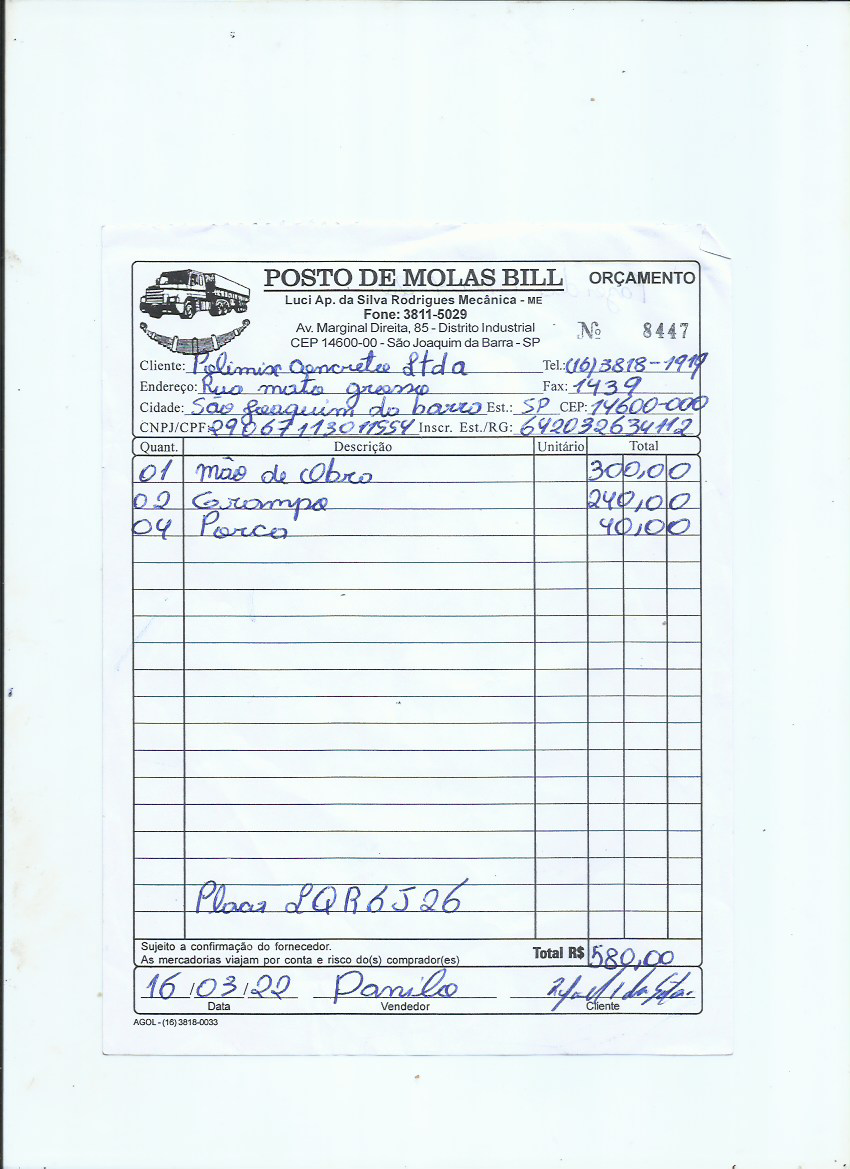 POSTO DE MOLAS BILL ORÇAMENTO
Luci Ap. da Silva Rodrigues Mecânica - ME
Fone: 3811-5029
Av. Marginal Direita, 85 - Distrito Industrial
CEP 14600-00 - São Joaquim da Barra - SP
Nº 8447
Cliente: Polimix Concreto Ltda Tel.: (16) 3818-1919
Endereço: Rua mato grosso Fax: 1439
Cidade: São Joaquim da barra Est.: SP CEP: 14600-000
CNPJ/CPF: 29067113011554 Inscr. Est./RG: 642032634112
Quant. Descrição Unitário Total
01 Mão de Obra 300,00
02 Grampo 240,00
04 Porca 40,00
Placa LQR6J26
Sujeito a confirmação do fornecedor.
As mercadorias viajam por conta e risco do(s) comprador(es)
Total R$ 580,00
16/03/22 Danilo
Data Vendedor Cliente
AGOL - (16) 3818-0033